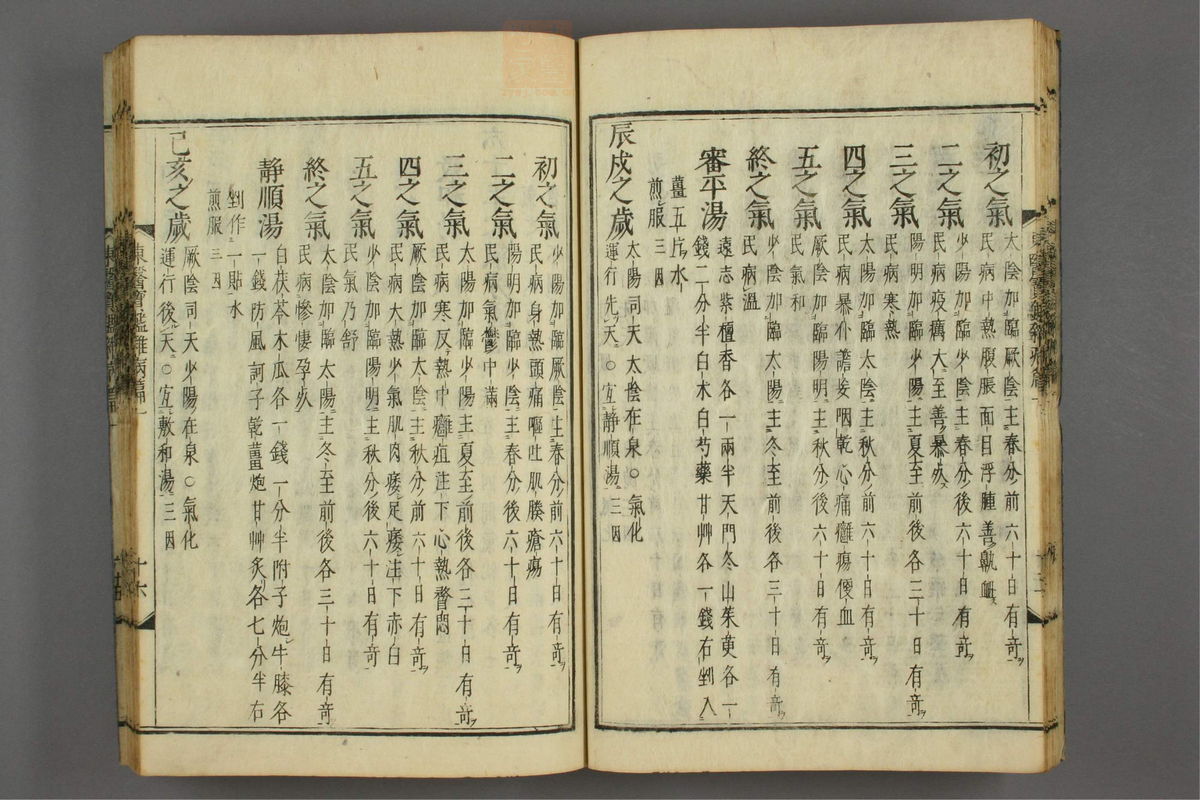 初之氣
太陰加臨厥陰主春分前六十日有竒
民病中熱腹脹面目浮腫善鼽衂
二之氣
少陰加臨少陰主春分後六十日有竒
民病疫癘大至善暴死
三之氣
陽明加臨少陽主夏至前後各三十日有竒
民病寒熱
四之氣
太陽加臨太陰主秋分前六十日有竒
民病暴仆譫妄咽乾心痛癰瘍便血
五之氣
厥陰加臨陽明主秋分後六十日有竒
民氣和
終之氣
少陰加臨太陽主冬至前後各三十日有竒
民病溫
審平湯
遠志紫檀香各一兩半天門冬山茱萸各一
錢二分半白朮白芍藥甘艸各一錢右剉入
薑五片水
煎服三因
辰戌之歲
太陽司天太陰在泉○氣化
運行先天○宜靜順湯三因
初之氣
少陽加臨厥陰主春分前六十日有竒
民病身熱頭痛嘔吐肌腠瘡瘍
二之氣
陽明加臨少陰主春分後六十日有竒
民病氣鬱中滿
三之氣
太陽加臨少陽主夏至前後各三十日有竒
民病寒反熱中癰疽注下心熱瞀悶
四之氣
厥陰加臨太陰主秋分前六十日有竒
民病大熱少氣肌肉痿足痿注下赤白
五之氣
少陰加臨陽明主秋分後六十日有竒
民氣乃舒
終之氣
太陰加臨太陽主冬至前後各三十日有竒
民病慘悽孕死
靜順湯
白茯苓木瓜各一錢一分半附子炮牛膝各
一錢防風訶子乾薑炮甘艸炙各七分半右
剉作一貼水
煎服三因
巳亥之歲
厥陰司天少陽在泉○氣化
運行後天○宜敷和湯三因
東醫寶鑑雜病篇一
十六